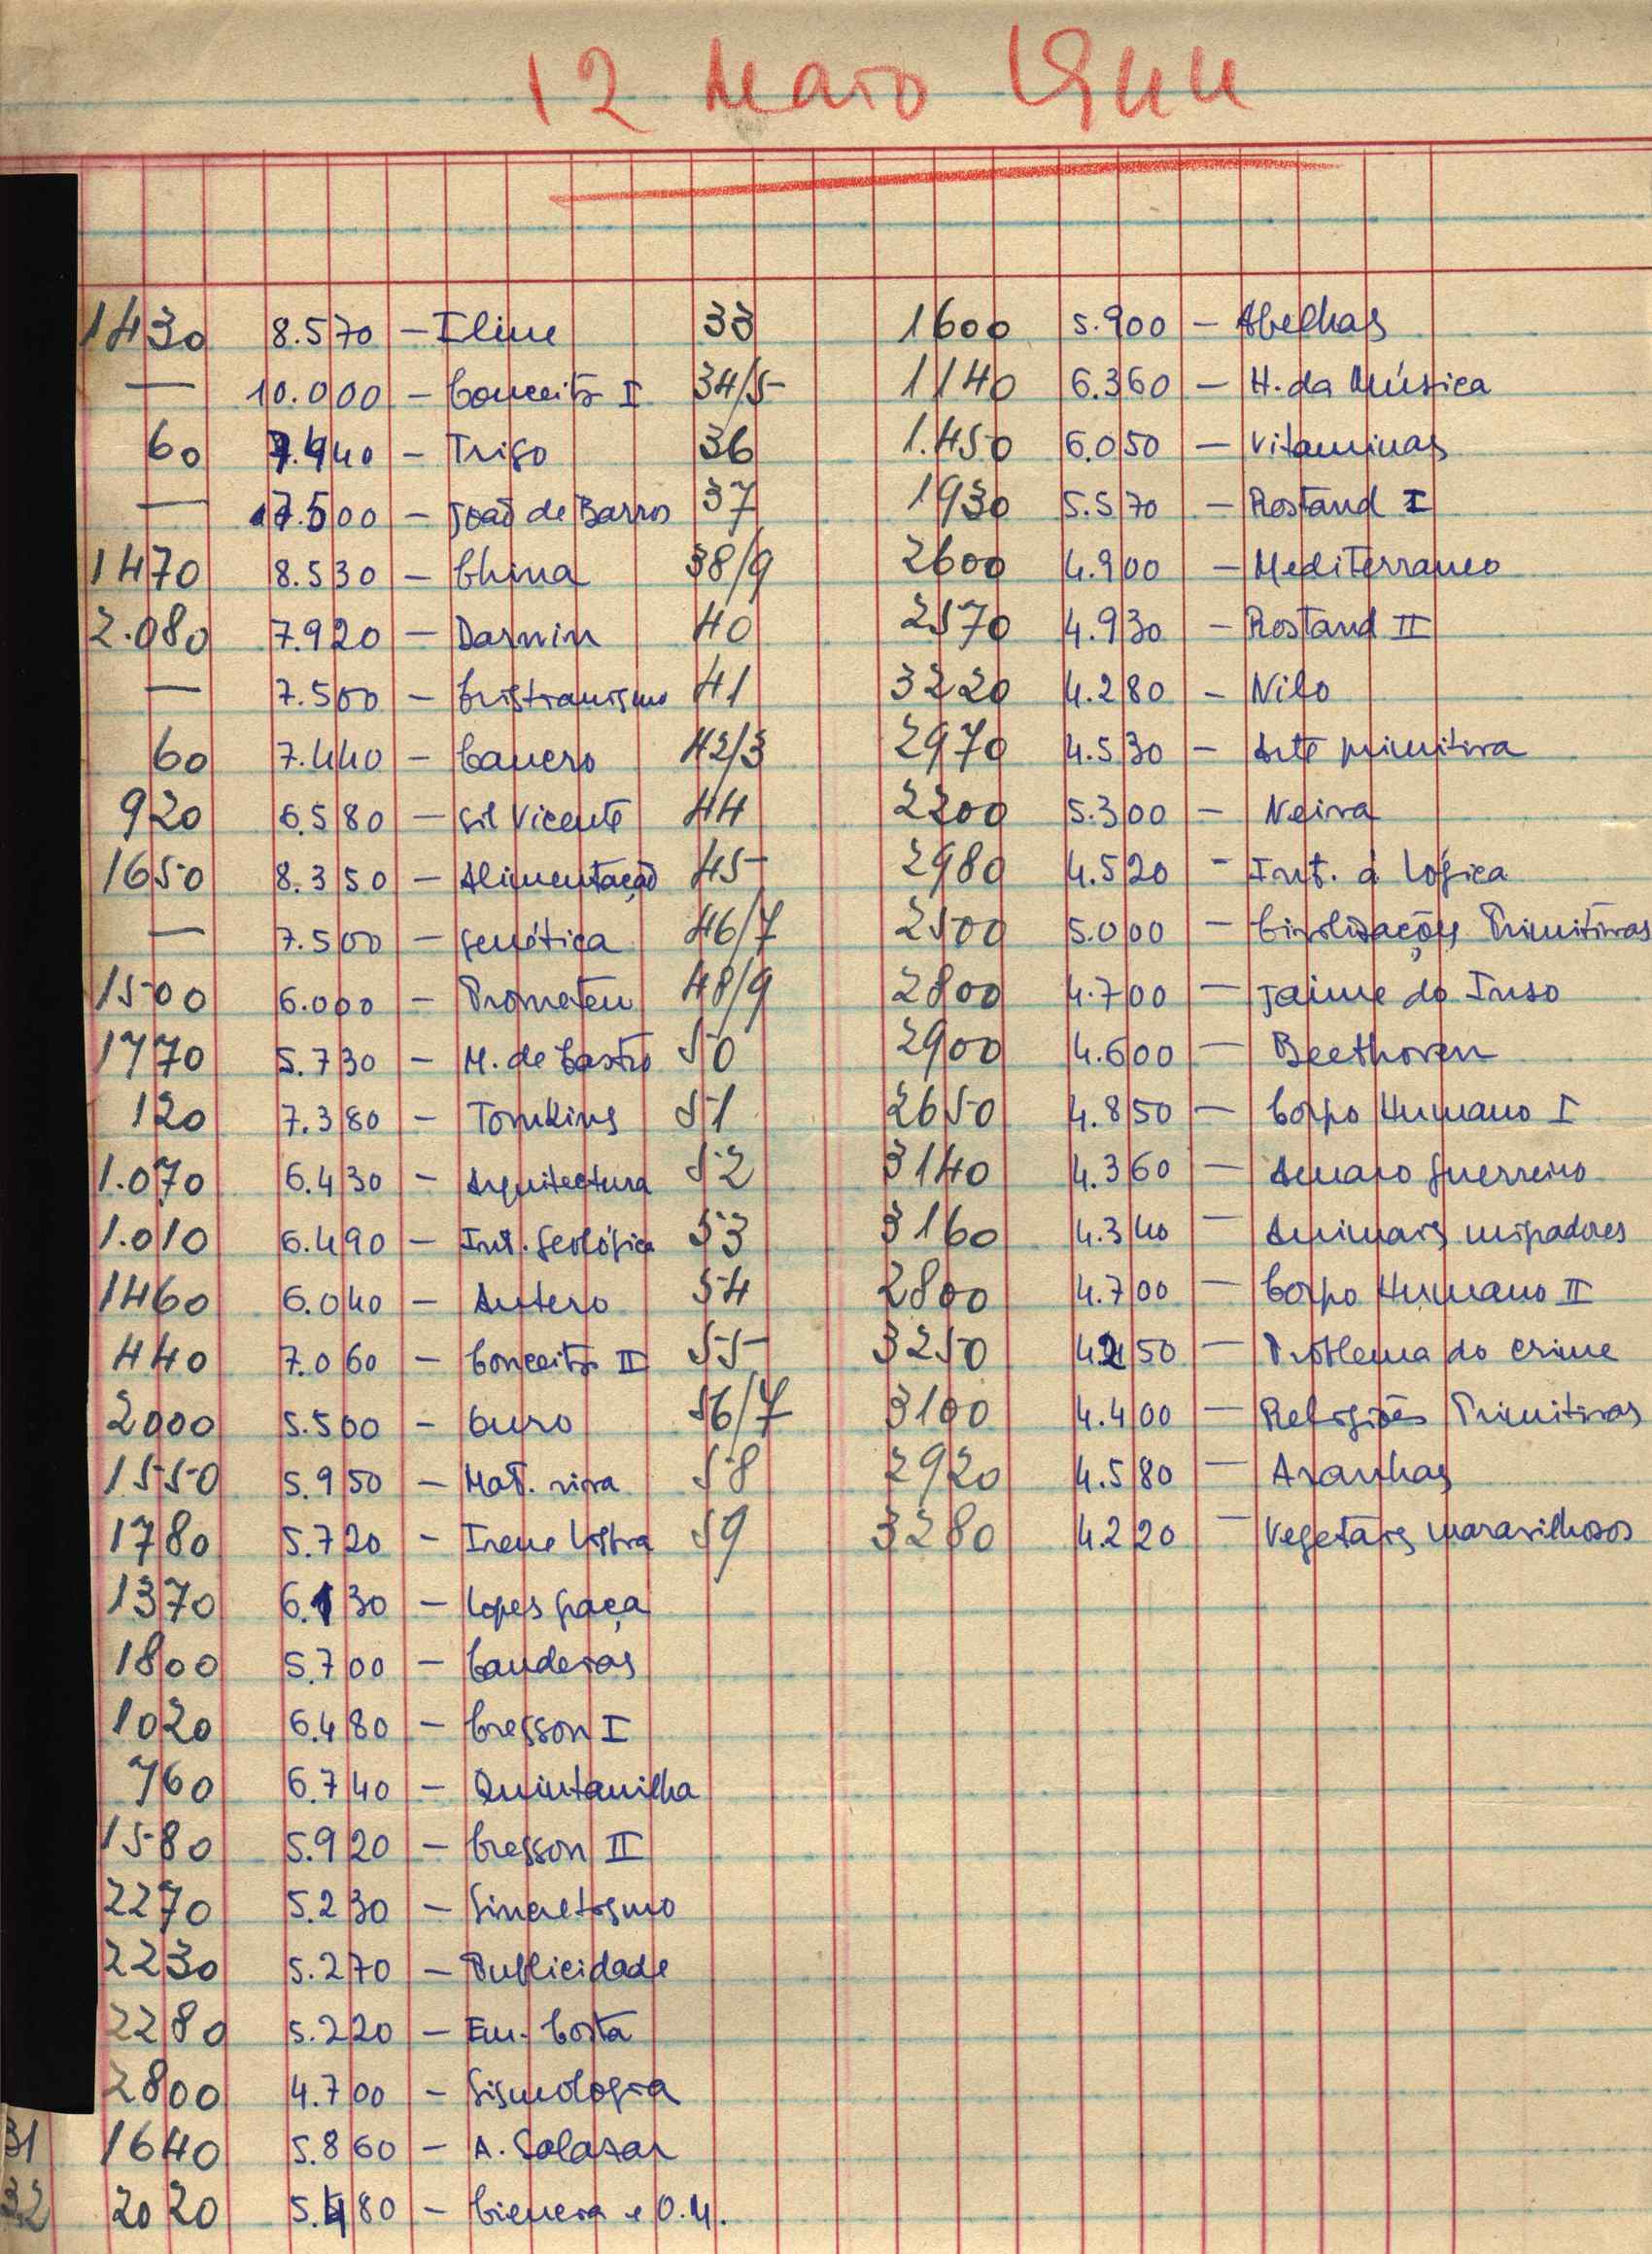 12 Maio 1944
1430 8.570 – Iline 33 1600 5.900 – Abelhas
— 10.000 – Conceito I 34/5 1140 6.360 – H. da Música
60 7.440 – Trigo 36 1.450 6.050 – Vitaminas
— 7.500 – João de Barros 37 1930 5.570 – Rostand I
1470 8.530 – China 38/9 2600 4.900 – Mediterraneo
2.080 7.920 – Darwin 40 2570 4.930 – Rostand II
— 7.500 – Cristianismo 41 3220 4.280 – Nilo
60 7.440 – Cancro 42/3 2970 4.530 – Arte primitiva
920 6.580 – Gil Vicente 44 2200 5.300 – Neiva
1650 8.350 – Alimentação 45 2980 4.520 – Int. à Lógica
— 7.500 – Genética 46/7 2500 5.000 – Civilizações Primitivas
1500 6.000 – Prometeu 48/9 2800 4.700 – Jaime do Inso
1770 5.730 – M. de Castro 50 2900 4.600 – Beethoven
120 7.380 – Tomkins 51 2650 4.850 – Corpo Humano I
1.070 6.430 – Arquitectura 52 3140 4.360 – Amaro Guerreiro
1.010 6.490 – Int. Geológica 53 3160 4.340 – Animais migradores
1460 6.040 – Antero 54 2800 4.700 – Corpo Humano II
440 7.060 – Conceito II 55 3250 4.250 – Problema do crime
2000 5.500 – Ouro 56/7 3100 4.400 – Religiões Primitivas
1550 5.950 – Mat. viva 58 2920 4.580 – Aranhas
1780 5.720 – Irene Lisboa 59 3280 4.220 – Vegetais maravilhosos
1370 6.130 – Lopes Graça
1800 5.700 – Candeias
1020 6.480 – Cresson I
760 6.740 – Quintanilha
1580 5.920 – Cresson II
2270 5.230 – Sincretismo
2230 5.270 – Publicidade
2280 5.220 – Em. Costa
2800 4.700 – Sismologia
31 1640 5.860 – A. Salazar
32 2020 5.480 – Ciencia e O.M.